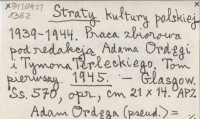 Straty kultury polskiej
1939-1944. Praca zbiorowa
pod redakcją Adama Ordęgi
i Tymona Terleckiego. Tom
pierwszy. 1945. - Glasgow.
Ss. 570, opr., cm 21 x 14. APZ
Adam Ordęga (pseud.) =